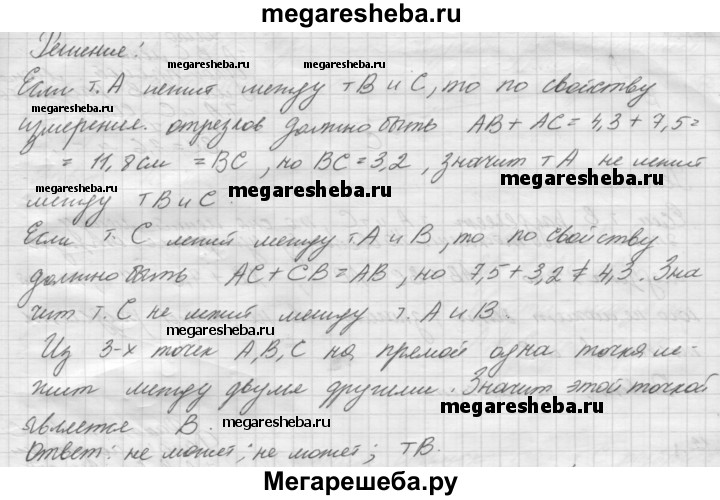 megaresheba.ru
Решение:
megaresheba.ru
Если т. А лежит между т В и С, то по свойству
megaresheba.ru
измерения. отрезков должно быть АВ + АС = 4,3 + 7,5 =
= 11,8 см = ВС, но ВС = 3,2, значит т А не лежит
megaresheba.ru
megaresheba.ru
между т В и С.
megaresheba.ru
Если т. С лежит между т. А и В, то по свойству
должно быть АС + СВ = АВ, но 7,5 + 3,2 ≠ 4,3. Зна
чит т. С не лежит между т. А и В.
megaresheba.ru
Из 3-х точек А, В, С на прямой одна точка ле-
жит между двумя другими. Значит этой точкой
megaresheba.ru
является В.
megaresheba.ru
Ответ: не может; не может; т В.
Мегарешеба.ру